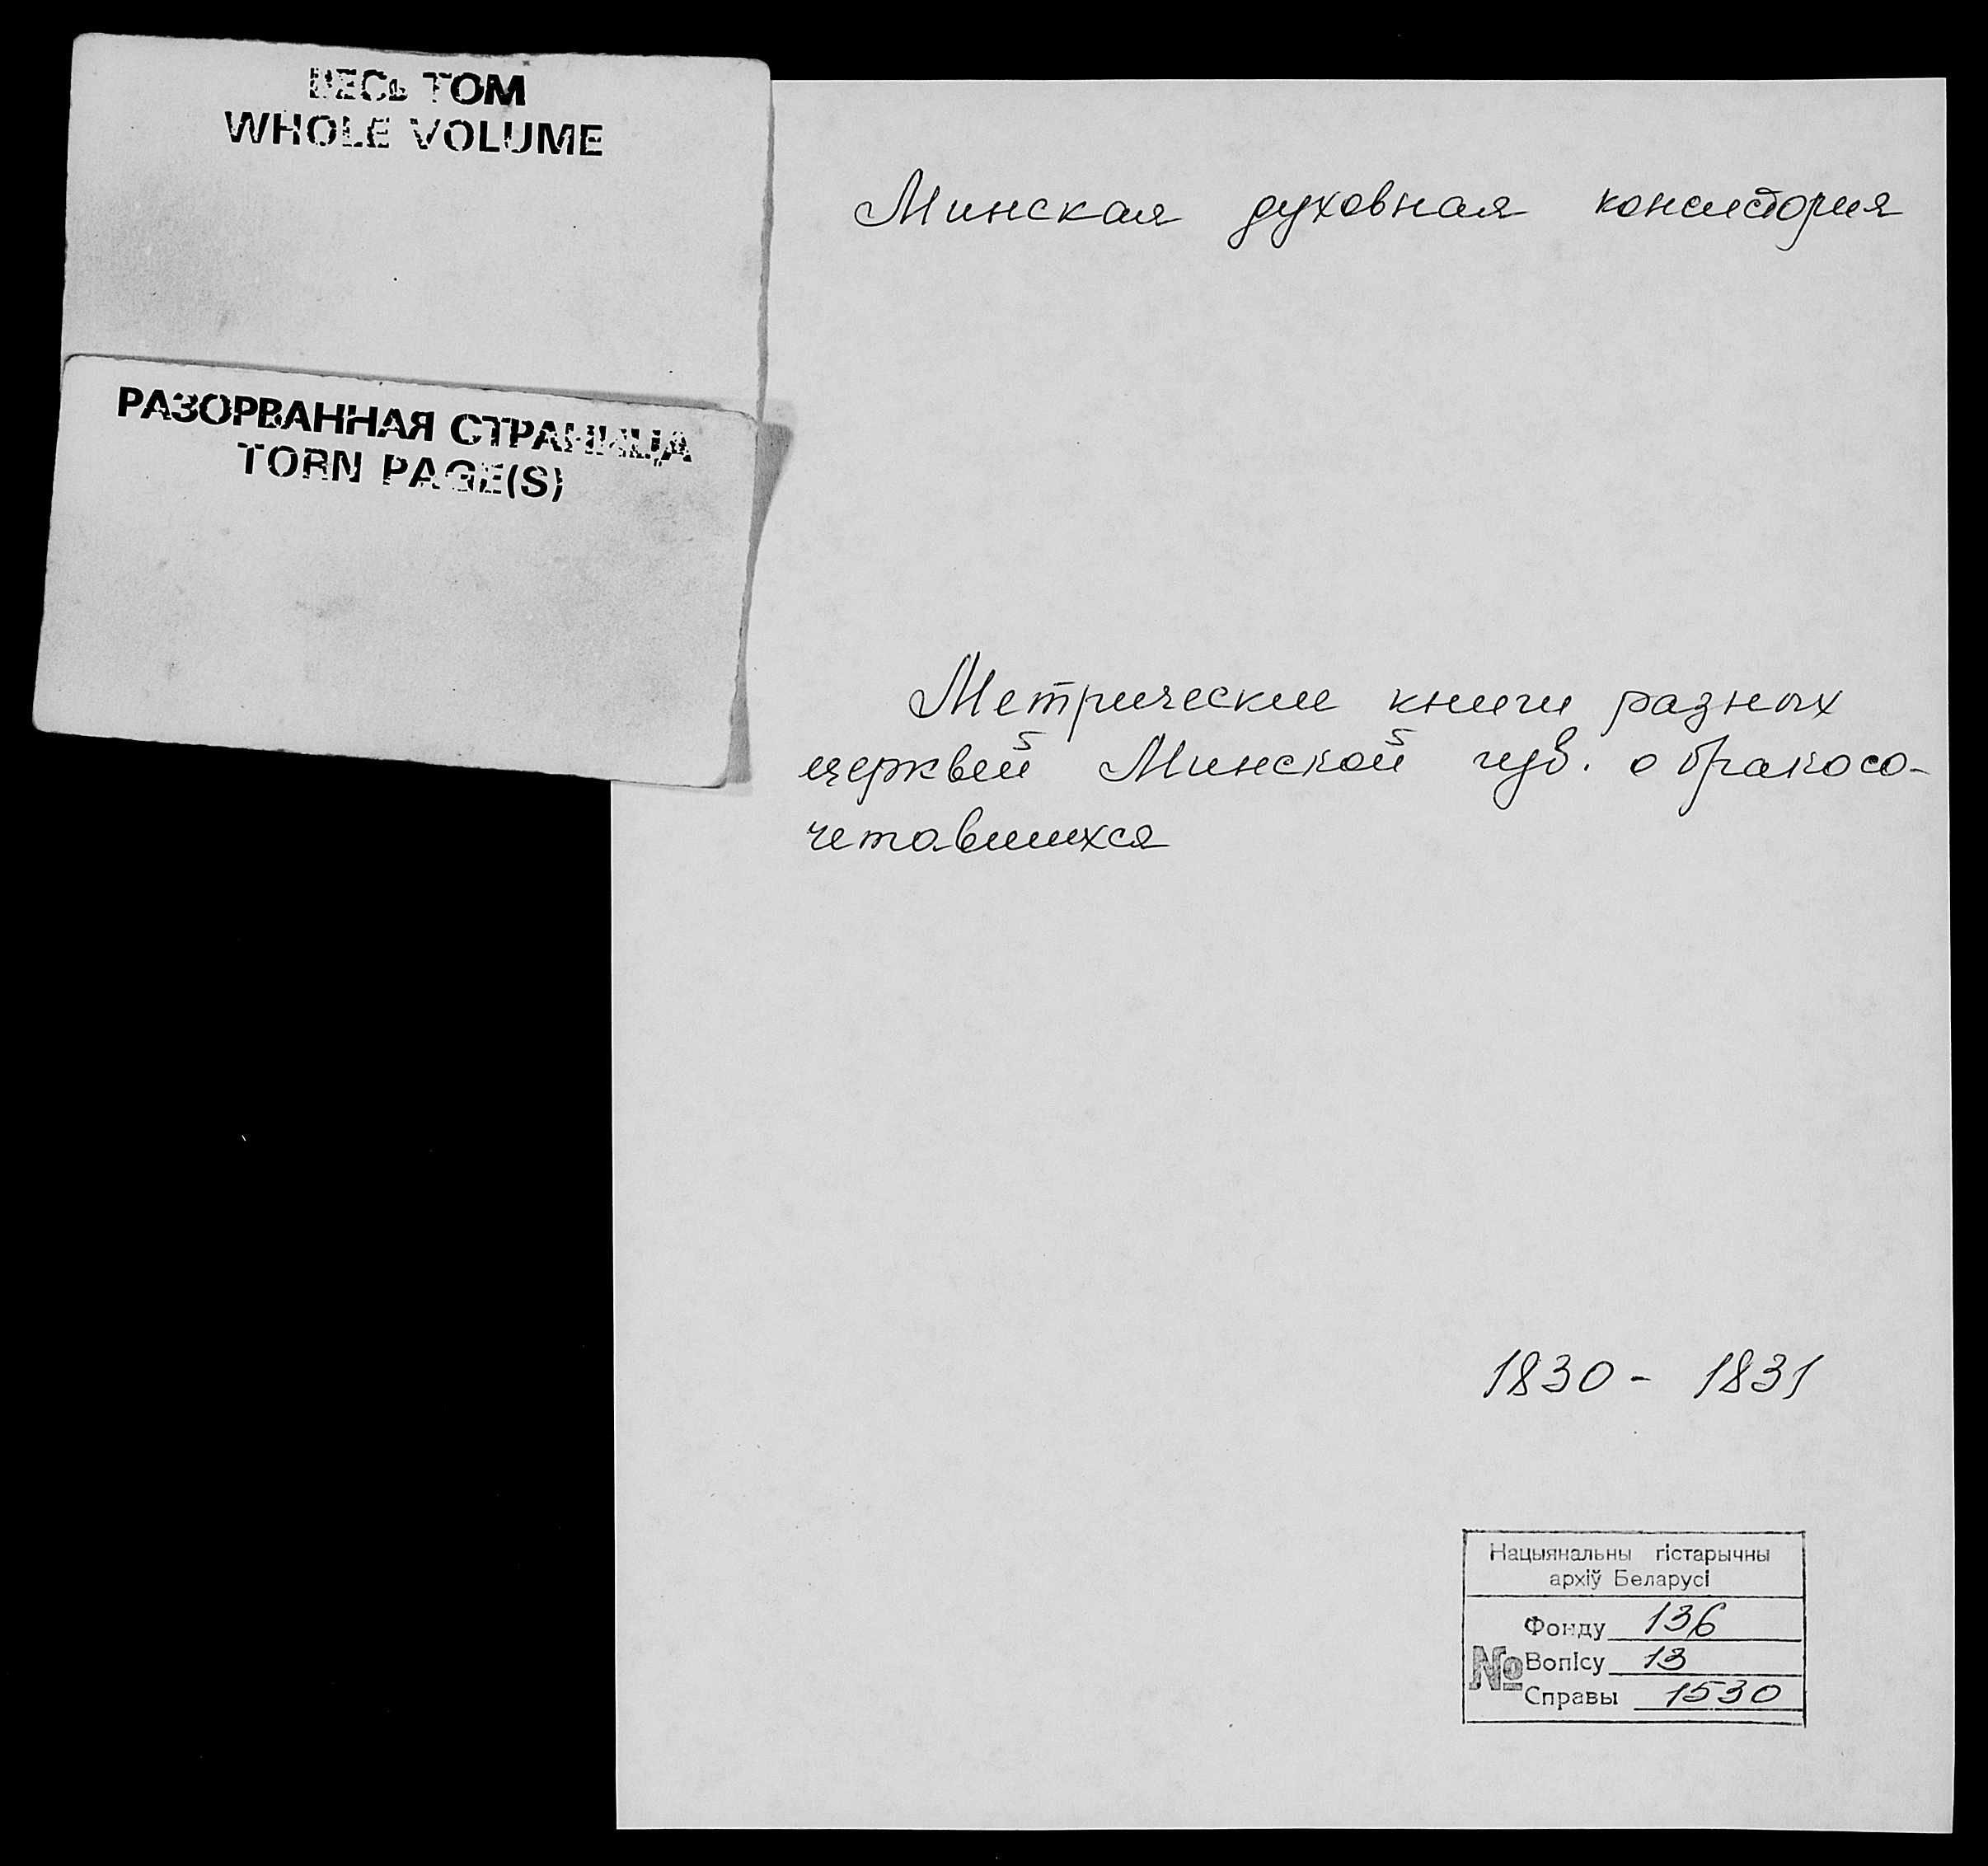 ВЕСЬ ТОМ
WHOLE VOLUME
РАЗОРВАННАЯ СТРАНИЦА
TORN PAGE(S)
Минская духовная консистория
Метрические книги разных
церквей Минской губ. о бракосо-
четавшихся
1830 - 1831
Нацыянальны гістарычны
архіў Беларусі
Фонду 136
№ Вопісу 13
Справы 1530